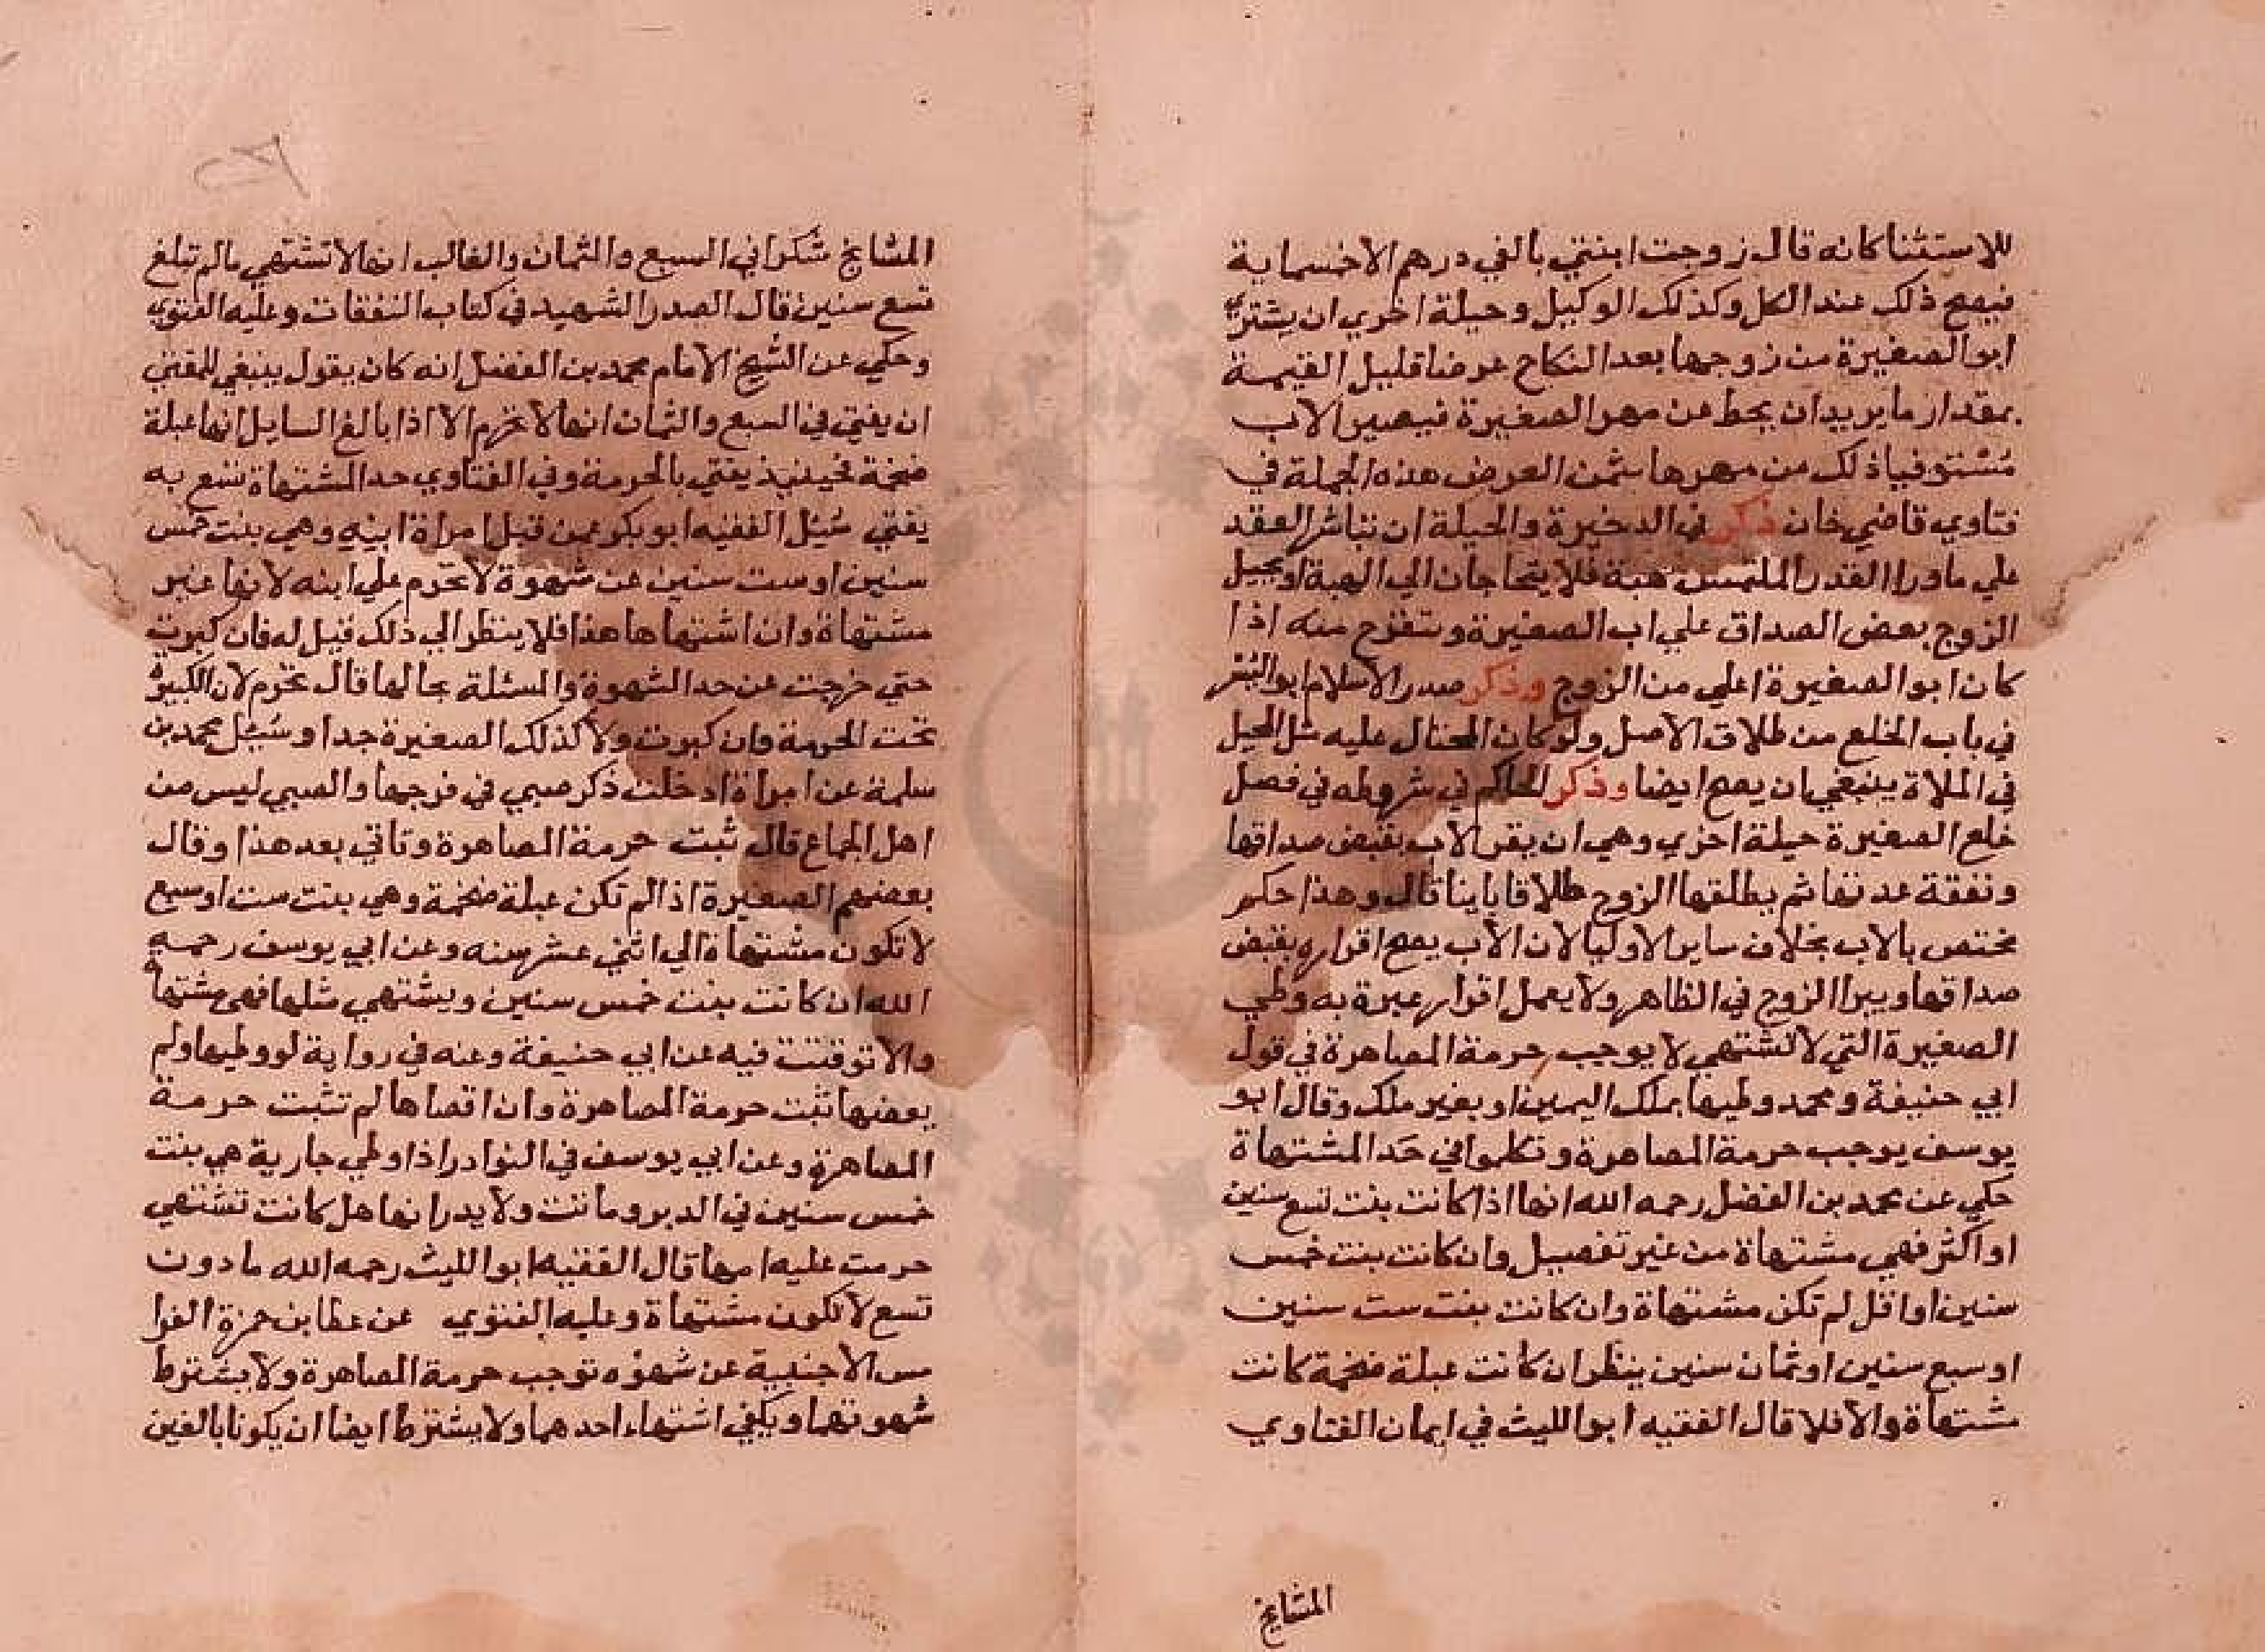 للاستثنا كانه قال زوجت ابنتي بالفي درهم الا خمسماية
فيصح ذلك عند الكل وكذلك الوكيل وحيلة اخري ان يشتري
ابو الصغيرة من زوجها بعد النكاح عرضا قليل القيمة
بمقدار ما يريد ان يحط عن مهر الصغيرة فيصير الاب
مستوفيا ذلك من مهرها بثمن العرض هذه الجملة في
فتاوي قاضي خان ذكر في الدخيرة والحيلة ان تباشر العقد
علي ماورا القدر الملتمس هبة فلا يحتاجان الي الهبة او يحيل
الزوج بعض الصداق علي اب الصغيرة وتفرح منه اذا
كان ابو الصغيرة اعلي من الزوج وذكر صدر الاسلام ابو اليسر
في باب الخلع من طلاق الاصل ولو كان المحتال عليه مثل المحيل
في الملاة ينبغي ان يصح ايضا وذكر الحاكم في شروطه في فصل
خلع الصغيرة حيلة اخري وهي ان يقر الاب بقبض صداقها
ونفقة عدتها ثم يطلقها الزوج طلاقا باينا قال وهذا حكم
مختص بالاب بخلاف ساير الاوليا لان الاب يصح اقراره بقبض
صداقها ويبرا الزوج في الظاهر ولا يعمل اقرار غيرة به وطي
الصغيرة التي لا تشتهي لا يوجب حرمة المصاهرة في قول
ابي حنيفة ومحمد وطيها بملك اليمين او بغير ملك وقال ابو
يوسف يوجب حرمة المصاهرة وتكلموا في حد المشتهاة
حكي عن محمد بن الفضل رحمه الله انها اذا كانت بنت تسع سنين
او اكثر فهي مشتهاة من غير تفصيل وان كانت بنت خمس
سنين او اقل لم تكن مشتهاة وان كانت بنت ست سنين
او سبع سنين او ثمان سنين ينظر ان كانت عبلة ضخمة كانت
مشتهاة والا فلا قال الفقيه ابو الليث في ايمان الفتاوي
المشايخ
المشايخ شكرا في السبع والثمان والغالب انها لا تشتهي مالم تبلغ
تسع سنين قال الصدر الشهيد في كتاب النفقات وعليه الفتوي
وحكي عن الشيخ الامام محمد بن الفضل انه كان يقول ينبغي للمفتي
ان يفتي في السبع والثمان انها لا تحرم الا اذا بالغ السايل انها عبلة
ضخمة فحينيذ يفتي بالحرمة وفي الفتاوي حد المشتهاة تسع به
يفتي سئل الفقيه ابو بكر عمن قبل امراة ابنه وهي بنت خمس
سنين او ست سنين عن شهوة لا تحرم علي ابنه لانها غير
مشتهاة وان اشتهاها هذا فلا ينظر الي ذلك قيل له فان كبرت
حتي خرجت عن حد الشهوة والمسئلة بحالها قال تحرم لان الكبيرة
تحت الحرمة وان كبرت ولا كذلك الصغيرة جدا وسئل محمد بن
سلمة عن امراة ادخلت ذكر صبي في فرجها والصبي ليس من
اهل الجماع قال ثبت حرمة المصاهرة وتاتي بعد هذا وقال
بعضهم الصغيرة اذا لم تكن عبلة ضخمة وهي بنت ست او سبع
لا تكون مشتهاة الي اثني عشر سنه وعن ابي يوسف رحمه
الله ان كانت بنت خمس سنين ويشتهي مثلها فهي مشتهاة
والا توقفت فيه عن ابي حنيفة وعنه في رواية لو وطيها ولم
يعضها ثبت حرمة المصاهرة وان اقصاها لم تثبت حرمة
المصاهرة وعن ابي يوسف في النوادر اذا وطي جارية هي بنت
خمس سنين في الدبر وماتت ولا يدرا انها هل كانت تشتهي
حرمت عليه امها قال الفقيه ابو الليث رحمه الله ما دون
تسع لا تكون مشتهاة وعليه الفتوي عن عطا بن حمزة الفرا
مس الاجنبية عن شهوه توجب حرمة المصاهرة ولا يشترط
شهوتهما ويكفي اشتهاء احدهما ولا يشترط ايضا ان يكونا بالغين